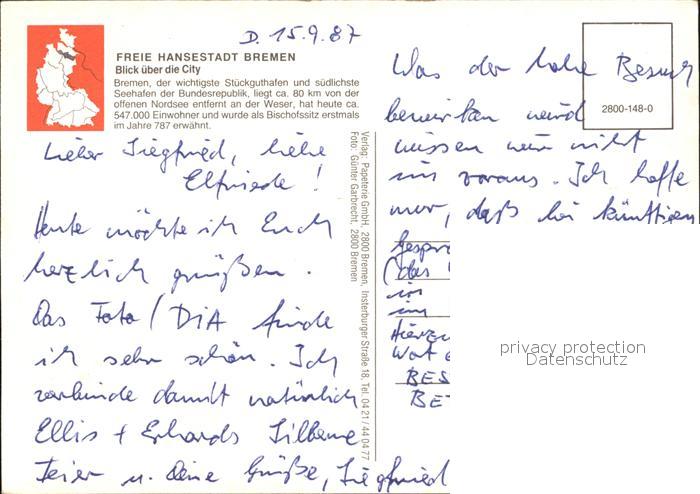 D. 15.9.87
FREIE HANSESTADT BREMEN
Blick über die City
Bremen, der wichtigste Stückguthafen und südlichste
Seehafen der Bundesrepublik, liegt ca. 80 km von der
offenen Nordsee entfernt an der Weser, hat heute ca.
547.000 Einwohner und wurde als Bischofssitz erstmals
im Jahre 787 erwähnt.
Lieber Siegfried, liebe
Elfriede!
Heute möchte ich Euch
herzlich grüßen.
Das Foto/DIA finde
ich sehr schön. Ich
verbinde damit natürlich
Ellis + Erhards Silberne
Feier u. Deine Grüße, Siegfried
Verlag: Papeterie GmbH, 2800 Bremen, Insterburger Straße 18, Tel. 04 21 / 44 04 77
Foto: Günter Garbrecht, 2800 Bremen
2800-148-0
Was der hohe Besuch
bewirken wird
wissen wir nicht
im voraus. Ich hoffe
nur, daß bei künftigen
Gesprä
(das
in
im
Hierzu
Wat
BES
BE
privacy protection
Datenschutz